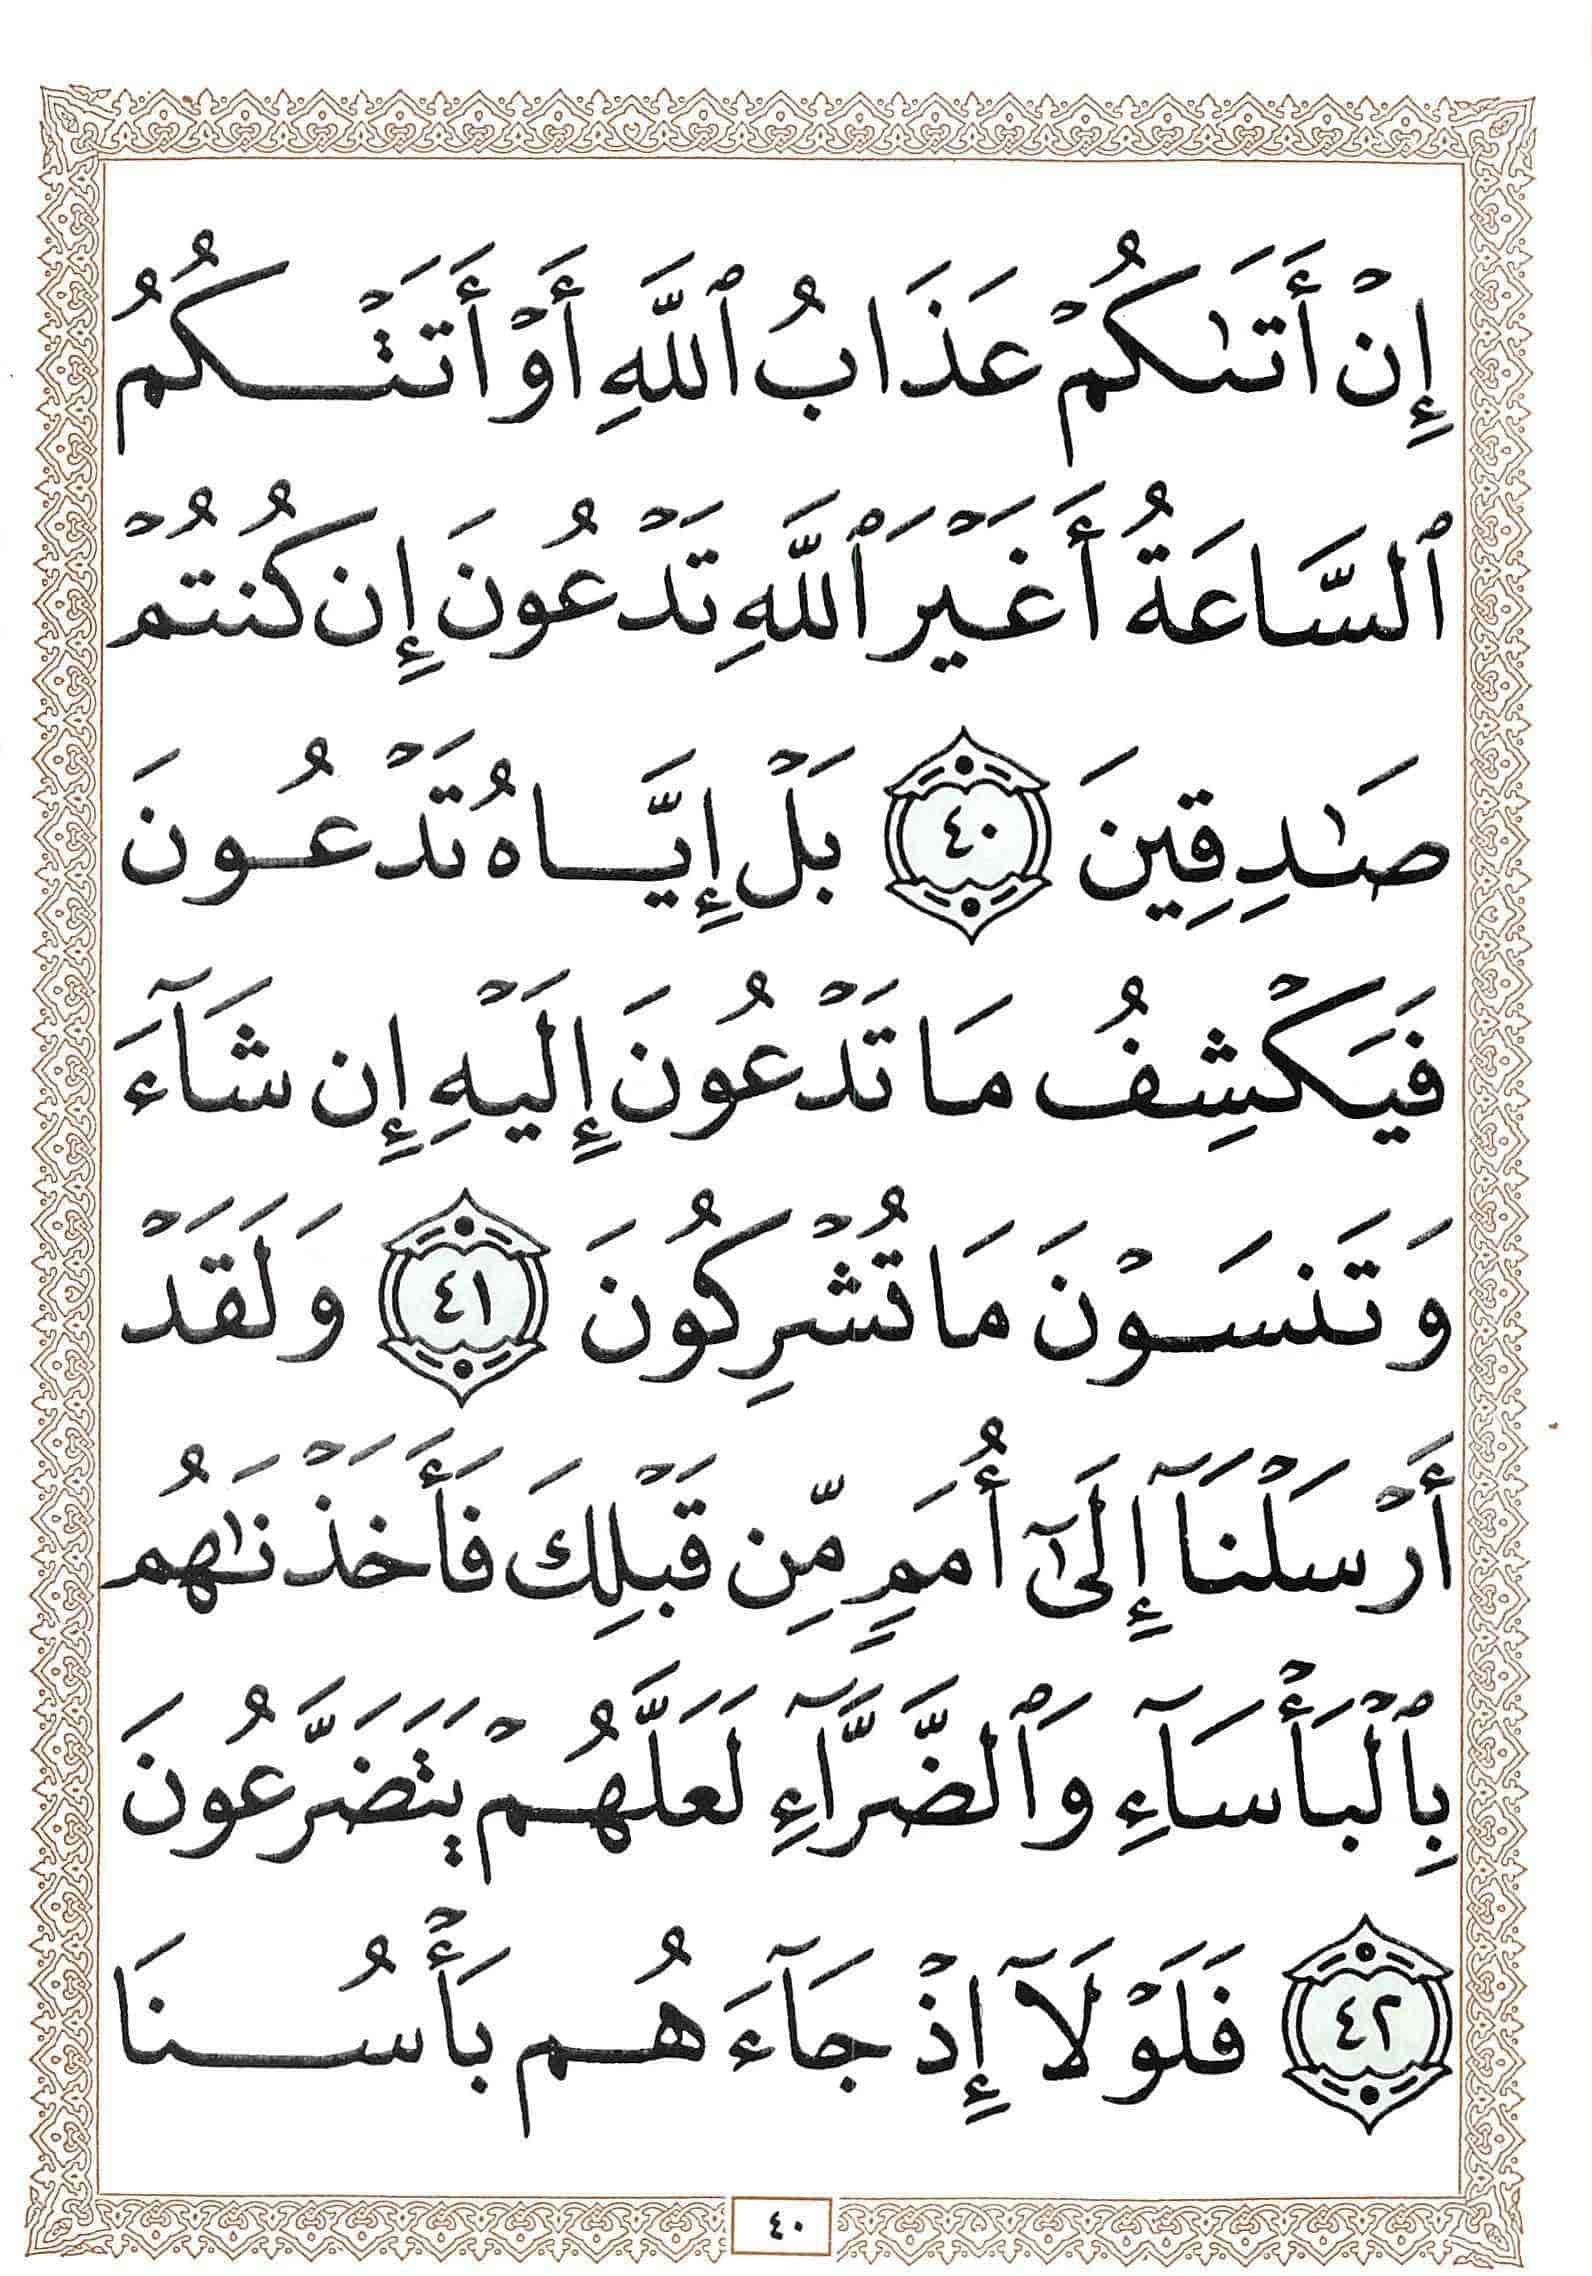 إِنْ أَتَىٰكُمْ عَذَابُ ٱللَّهِ أَوْ أَتَتْكُمُ
ٱلسَّاعَةُ أَغَيْرَ ٱللَّهِ تَدْعُونَ إِن كُنتُمْ
صَٰدِقِينَ ٤٠ بَلْ إِيَّاهُ تَدْعُونَ
فَيَكْشِفُ مَا تَدْعُونَ إِلَيْهِ إِن شَآءَ
وَتَنسَوْنَ مَا تُشْرِكُونَ ٤١ وَلَقَدْ
أَرْسَلْنَآ إِلَىٰٓ أُمَمٍ مِّن قَبْلِكَ فَأَخَذْنَٰهُم
بِٱلْبَأْسَآءِ وَٱلضَّرَّآءِ لَعَلَّهُمْ يَتَضَرَّعُونَ
٤٢ فَلَوْلَآ إِذْ جَآءَهُم بَأْسُنَا
٤٠